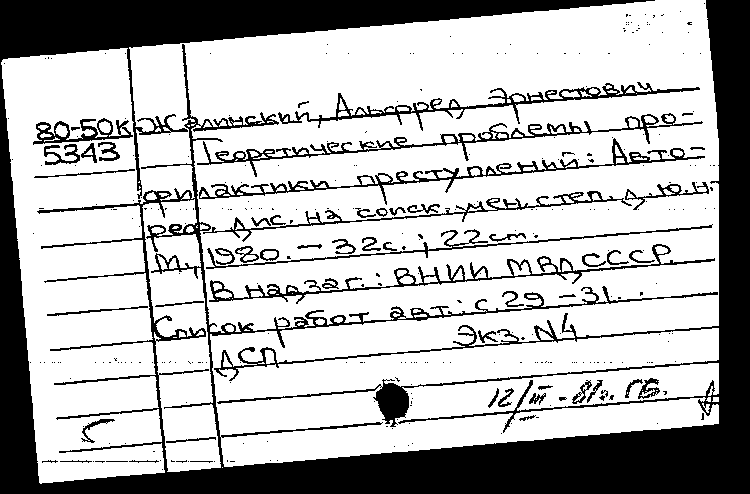 80-50К Жалинский, Альфред Эрнестович.
5343 Теоретические проблемы про-
филактики преступлений: Авто-
реф. дис. на соиск. учен. степ. д. ю. н.
М., 1980. – 32с.; 22см.
В надзаг.: ВНИИ МВД СССР.
Список работ авт.: с. 29 – 31.
Экз. N4.
ДСП.
12/III - 81г. ГБ.